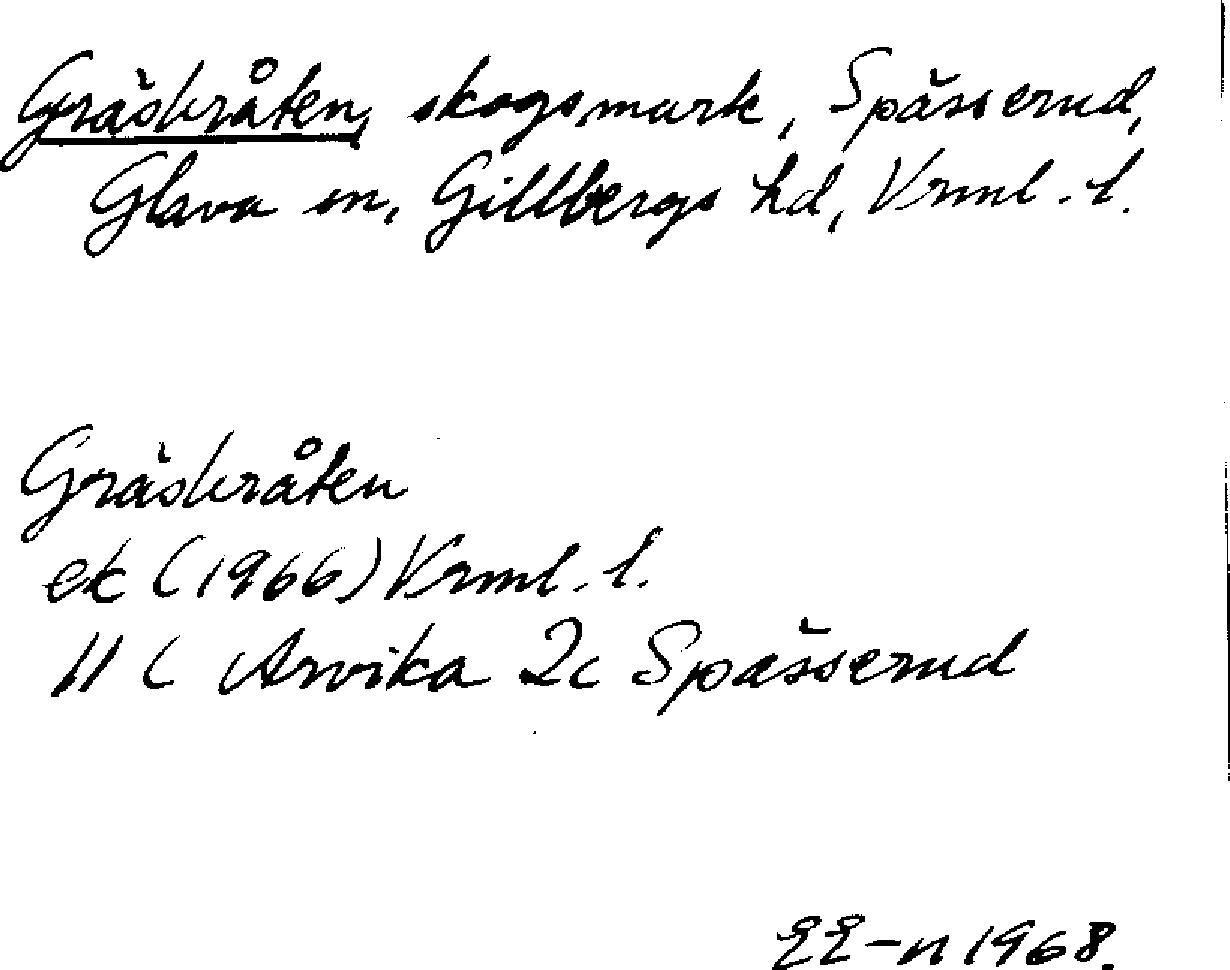 Gräskråten, skogsmark, Spässerud,
Glava sn, Gillbergs hd, Vrml. l.
Gräskråten
ek (1966) Vrml. l.
11 C Arvika 2c Spässerud
EE-n 1968.